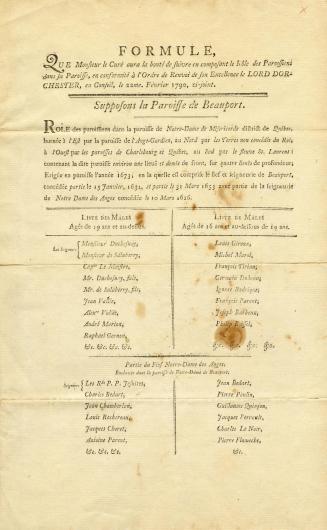 FORMULE,
QUE Monsieur le Curé aura la bonté de suivre en composant le Rôle des Paroissiens
dans sa Paroisse, en conformité à l'Ordre de Renvoi de son Excellence le LORD DOR-
CHESTER, en Conseil, le 22me. Février 1790, ci-joint.
Supposons la Paroisse de Beauport.
ROLE des paroissiens dans la paroisse de Notre-Dame de Miséricorde district de Québec,
bornée à l'Est par la paroisse de l'Ange-Gardien, au Nord par les Terres non concedée du Roi,
à l'Ouest par les paroisses de Charlesbourg et Québec, au Sud par le fleuve St. Laurent:
contenant la dite paroisse environ une lieu et demie de front, sur quatre lieues de profondeur;
Erigée en paroisse l'année 1673; en la quelle est comprise le fief et seigneurie de Beauport,
concédée partie le 15 Janvier, 1634, et partie le 31 Mars 1653 avec partie de la seigneurie
de Notre Dame des Anges concédée le 10 Mars 1626.
LISTE DES MALES
Agés de 19 ans et au-dessus.
Les Seigneurs { Monsieur Duchesnay,
Monsieur de Salaberry,
Capne. Le Maistre,
Mr. Duchesnay, fils,
Mr. de Salaberry, fils,
Jean Vallée,
Alexn. Vallée,
André Marcou,
Raphael Gernon,
&c. &c. &c. &c.
LISTE DES MALES
Agés de 16 ans et au-dessous de 19 ans.
Louis Giroux,
Michel Morel,
François Vivien,
Germain Dubeau,
Ignace Rodrigue,
François Parent,
Joseph Baubien,
Philip
&c. &c. &c. &c.
Partie du Fief Notre-Dame des Anges.
Enclavée dans la paroisse de Notre-Dame de Beauport.
Seigneurs { Les Rds P. P. Jésuites,
Charles Bedart,
Jean Chamberlan,
Louis Rochereau,
Jacques Choret,
Antoine Parent,
&c. &c. &c. &c.
Jean Bedart,
Pierre Poulin,
Guillaume
Jacques Perrault,
Charles Le Noir,
Pierre
&c.